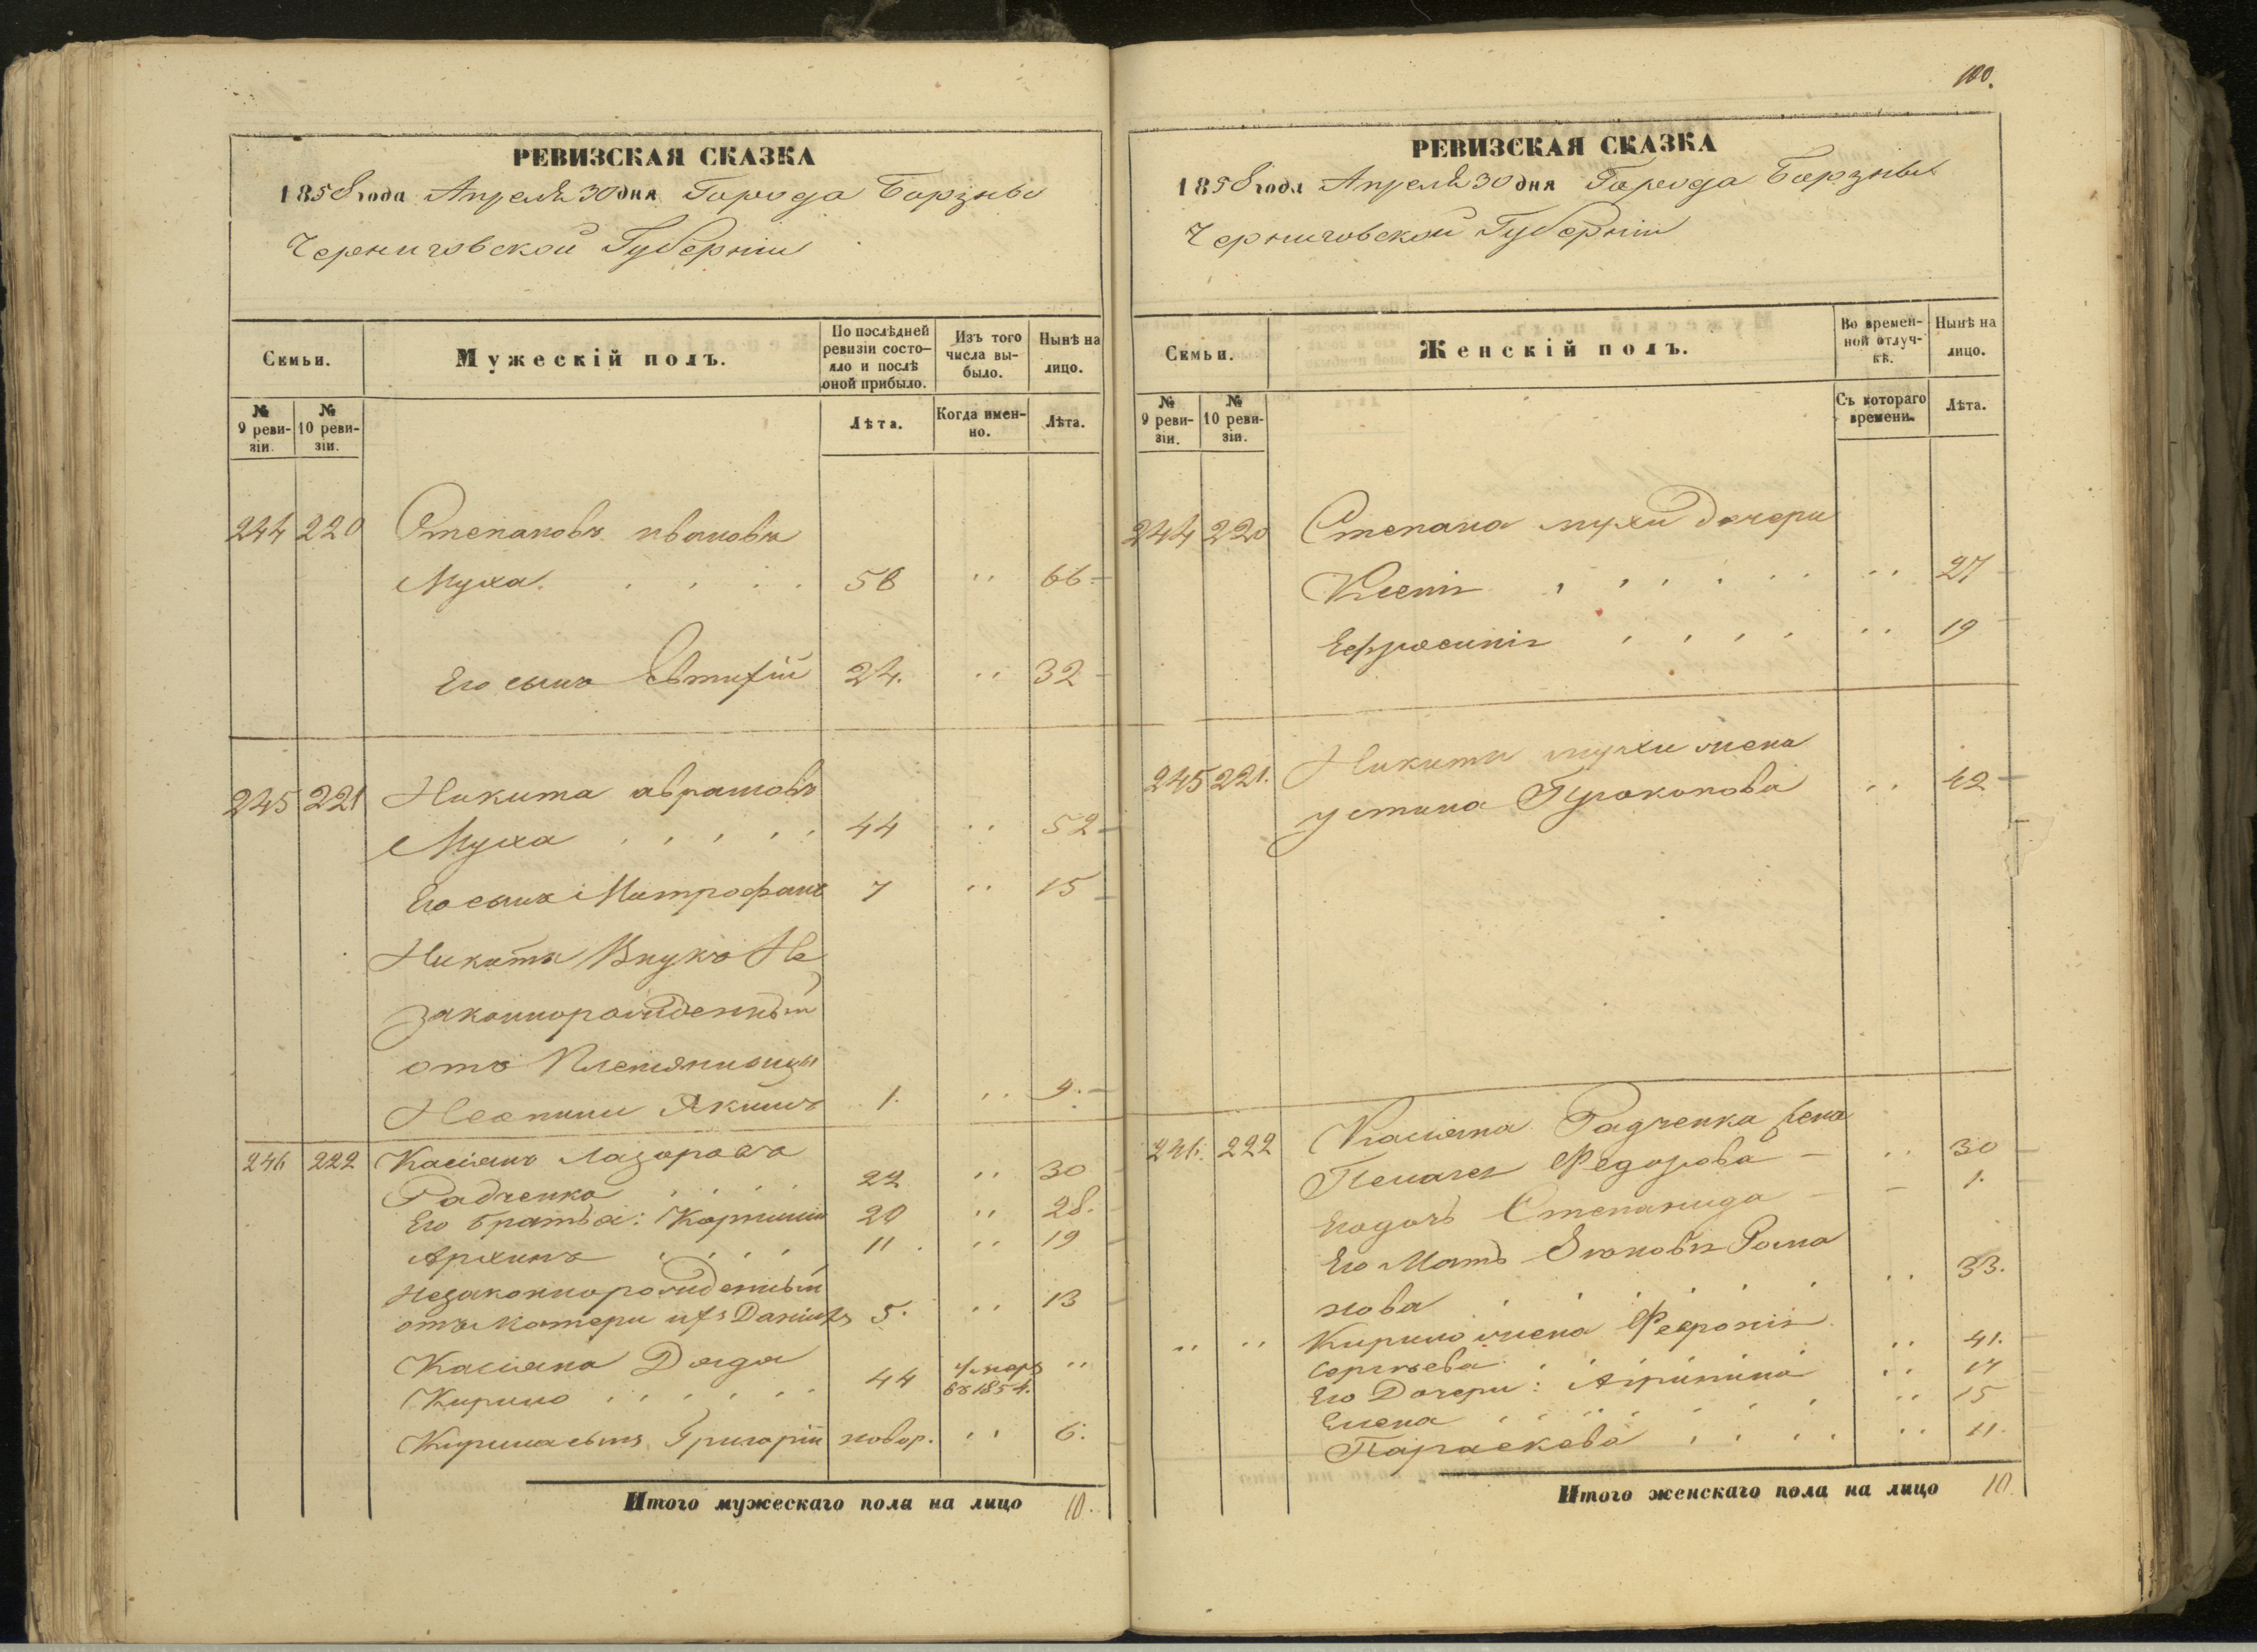 100.
РЕВИЗСКАЯ СКАЗКА
1858 года Апреля 30 дня Города Борзны
Черниговской Губернии
Семьи. Мужескій полъ. По послѣдней ревизіи состо-яло и послѣ оной прибыло. Изъ того числа вы-было. Нынѣ на лицо.
№ 9 реви-зіи. № 10 реви-зіи. Лѣта. Когда имен-но. Лѣта.
244 220 Степановъ ивановъ
Муха 58 " 66
Его сынъ Евтихій 24. " 32
245 221 Никита аврамовъ
Муха 44 " 52
Его сынъ Митрофанъ 7 " 15
Никиты Внукъ Не
законнорожденный
отъ Племянницы
Якимъ 1. " 9.
246 222 Касіянъ Лазоровъ
Радченко 22 " 30
Его братья: Корнилій 20 " 28.
Архипъ 11 " 19
Незаконнорожденный
отъ матери ихъ Даніилъ 5. " 13
Касіяна Дядя
Кирило 44 умеръ въ 1854. "
Кирила сынъ Григорій новор. " 6.
Итого мужескаго пола на лицо 10.
РЕВИЗСКАЯ СКАЗКА
1858 года Апреля 30 дня Города Борзны
Черниговской Губернии
Семьи. Женскій полъ. Во времен-ной отлуч-кѣ. Нынѣ на лицо.
№ 9 реви-зіи. № 10 реви-зіи. Съ котораго времени. Лѣта.
244 220 Степана мухи дочери
Ксенія " 27
Ефросинія " 19
245 221. Никиты мухи жена
устина Прокопова " 42
246. 222 Касіяна Радченка жена
Пелагея Федорова " 30
Его дочь Степанида 1.
Его Мать Рома
нова " 33.
" " Кирило жена Февронія
Сергѣева " 41.
Его Дочери: Агрипина " 17
Елена " 15
Параскева " 11.
Итого женскаго пола на лицо 10.